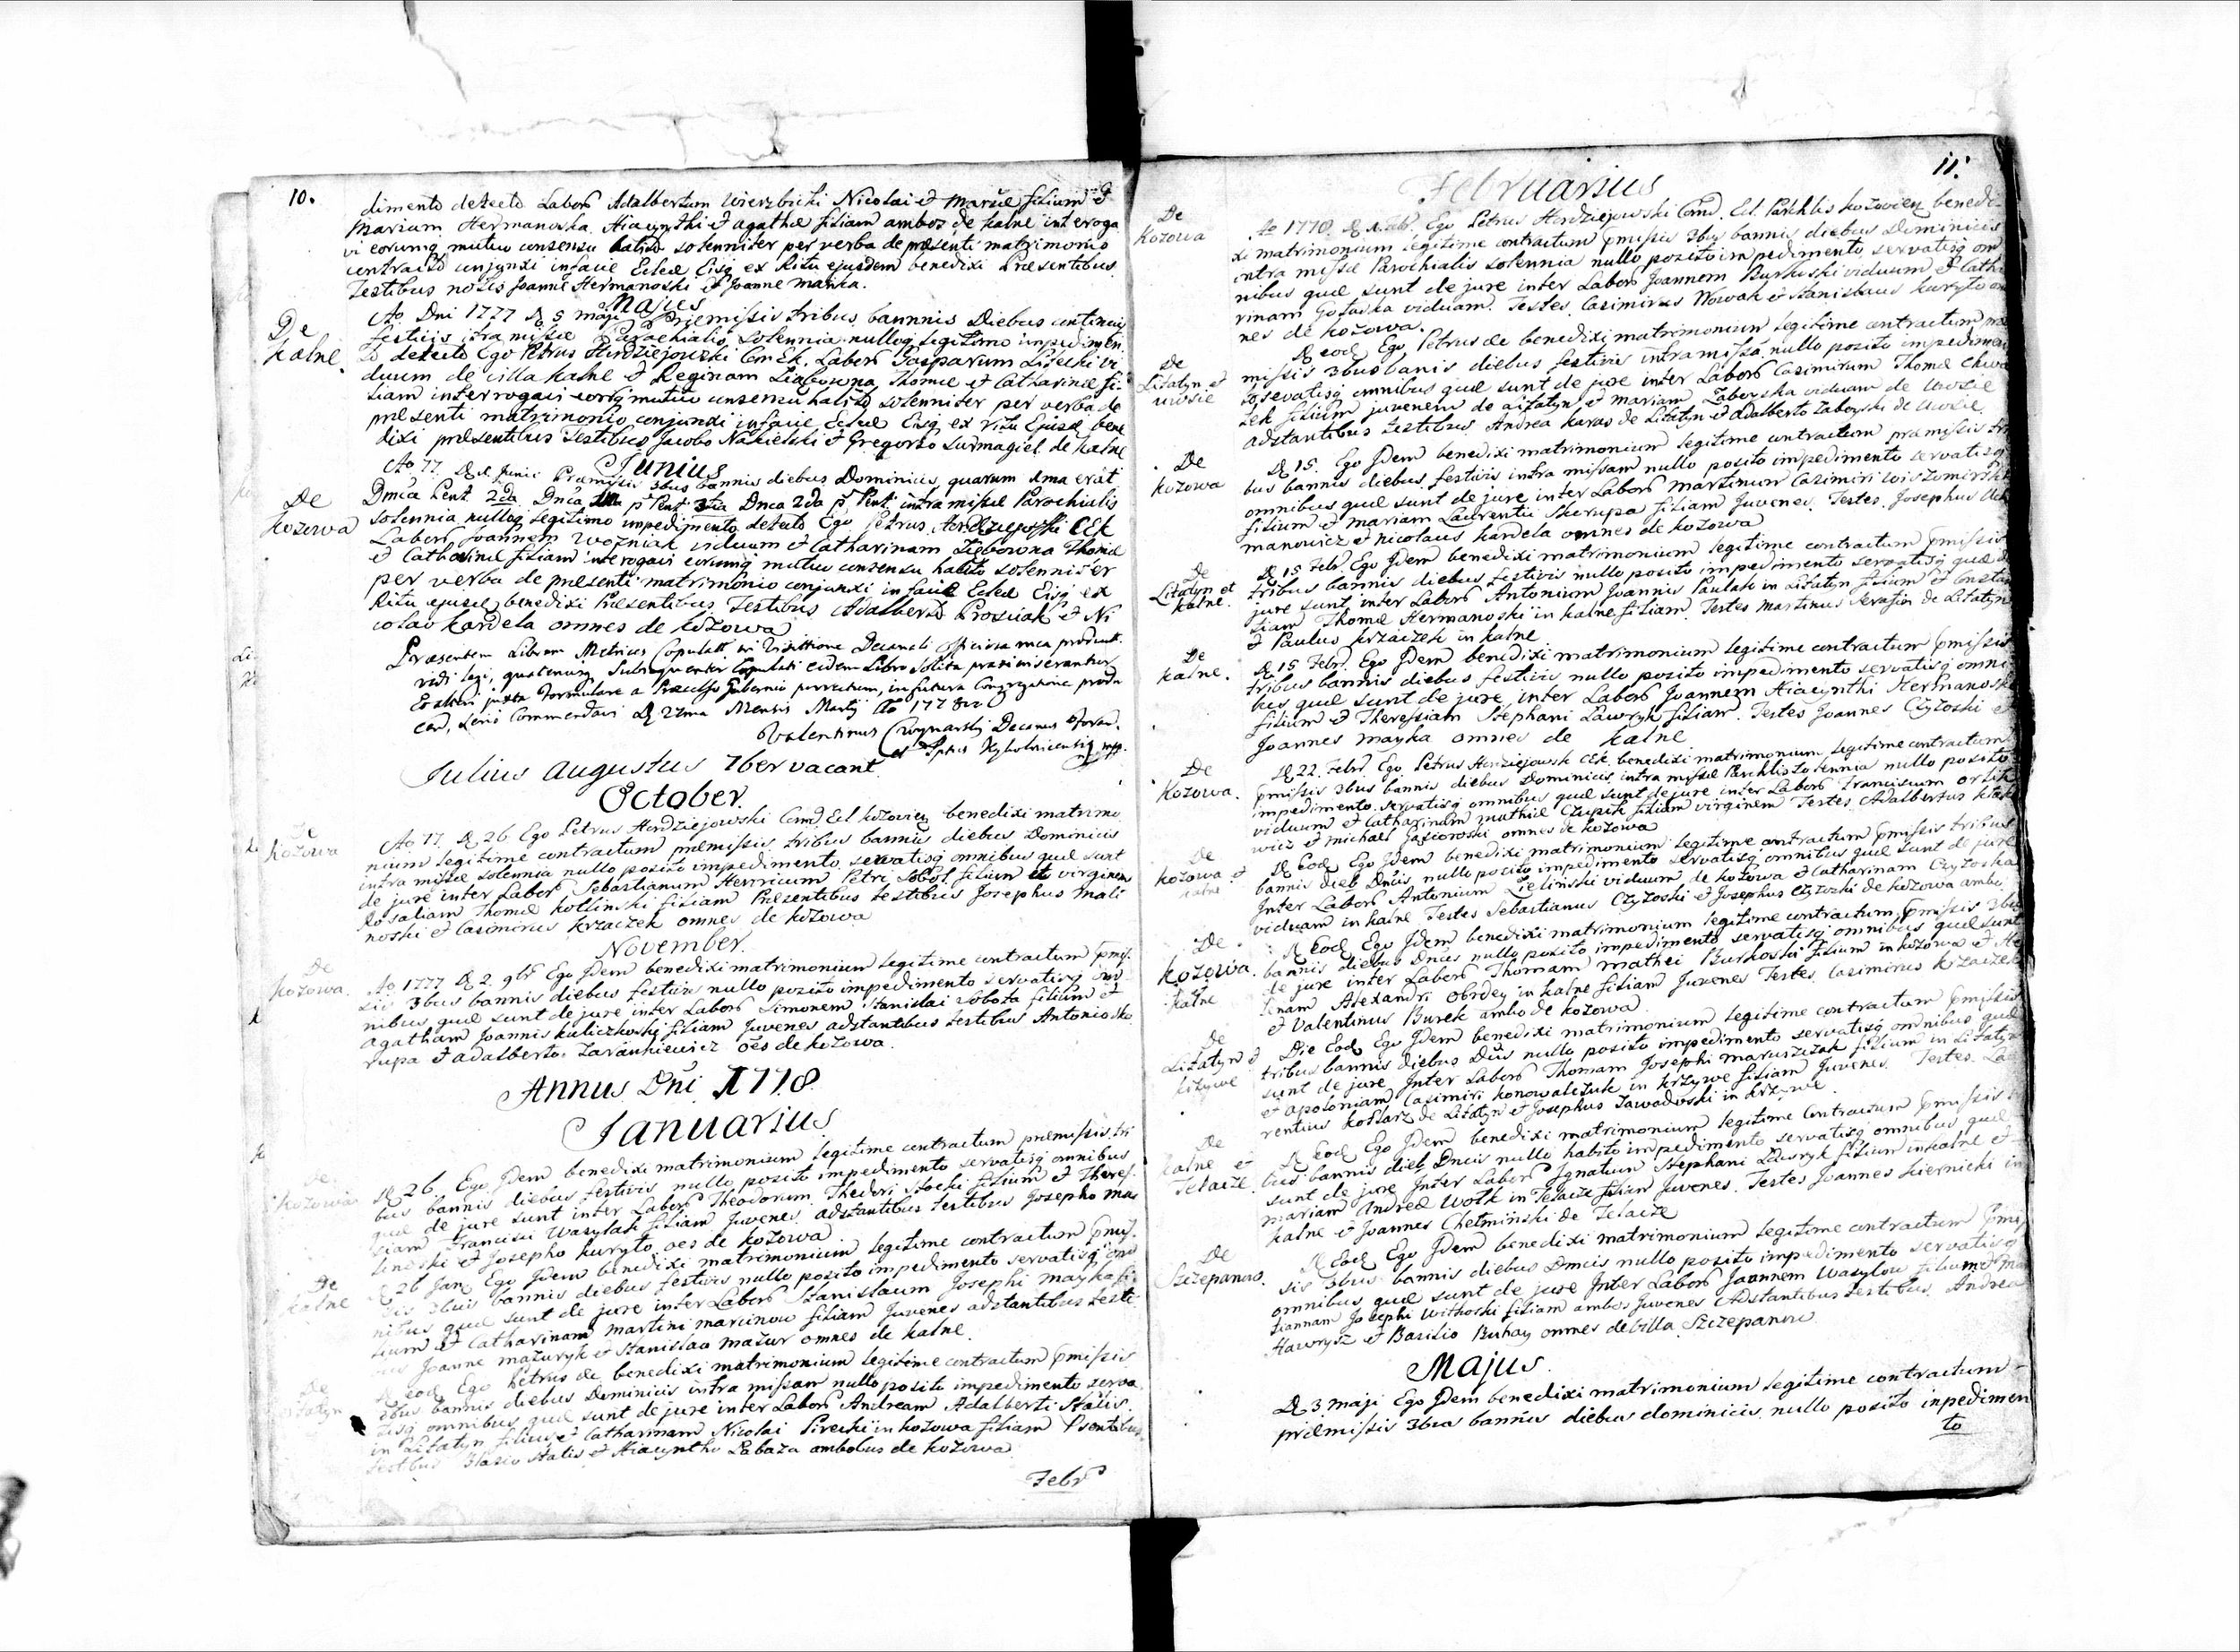 10.
dimento detecto Labor Adalbertum Wierzbicki Nicolai et Mariæ filium et
Mariam Hermanoska Hiacynthi et Agathæ filiam ambos de Kalne interoga
vi eorumq mutuo consensu habito solenniter per verba de præsenti matrimonio
contracto conjunxi in facie Eclæ Eisq ex Ritu ejusdem benedixi Præsentibus
Testibus notis Joanne Hermanoski et Joanne Mayka.
Majus
De Kalne.
Ao Dni 1777 D 5 Maji Præmissis tribus bannnis Diebus continuis
festivis intra missæ Parochialis Solennia nulloq legitimo impedimen
to detecto Ego Petrus Hordziejowski Com Ek. Labor Gasparum Lisecki vi
duum de villa Kalne et Reginam Thomæ et Catharinæ fi
liam interrogavi eorumq mutuo consensu habito solenniter per verba de
præsenti matrimonio conjunxi in facie Eclæ Eisq ex ritu Ejusd bene
dixi præsentibus Testibus Jacobo Nakielski et Gregorio Surmagiel de Kalne
Junius
De Kozowa
Ao 77 Junii Præmissis 3bus bannis diebus Dominicis, quarum 1ma erat
Dnica Pent. 2da Dnica p Pent 3tia Dnca 2da p Pent. intra missæ Parochialis
solennia nulloq legitimo impedimento detecto Ego Petrus Hordziejowski CEK
Labor Joannem Wozniak viduum et Catharinam Thomæ
et Catharinæ filiam interogavi eorumq mutuo consensu habito solenniter
per verba de præsenti matrimonio conjunxi in facie Eclæ Eisq ex
Ritu ejusd benedixi Præsentibus Testibus Adalberto Prosniak et Ni
colao Kardela omnes de Kozowa
Præsentem Librum Metrices Copulat in Visittione Decanali
vidi legi, Subsequenter Copulati eidem Libro Solita praxi
juxta Formulare a Gubernio in futura Congregatione
Commendavi D 27ma Mensis Martij Ao 1778vo
Valentinus Decanus Foran.
Julius Augustus 7ber vacant
October.
De Kozowa
Ao 77 D 26 Ego Petrus Hordziejowski Comd Ecl Kozovien benedixi matrimo
nium legitime contractum præmissis tribus bannis diebus Dominicis
intra missæ solennia nullo posito impedimento servatisq omnibus quæ sunt
de jure inter Labor Sebastianum Henricum Petri Sobol filium et virginem
Rosaliam Thomæ Kotlinski filiam Præsentibus testibus Josephus Mali
noski et Casimirus Krzaczek omnes de Kozowa
November.
De Kozowa.
Ao 1777 D 2. 9br Ego Jdem benedixi matrimonium legitime contractum pmis
sis 3bus bannis diebus festivis nullo posito impedimento servatisq om
nibus quæ sunt de jure inter Labor Simonem Stanislai Robota filium et
Agatham Joannis Kuliczkoski filiam Juvenes adstantibus testibus Antonio Sko
rupa et Adalberto Zarankiewicz oes de Kozowa.
Annus Dni 1778.
Januarius
De Kozowa
D 26. Ego Jdem benedixi matrimonium legitime contractum præmissis tri
bus bannis diebus festivis nullo posito impedimento servatisq omnibus
quæ de jure sunt inter Labor Theodorum Thedori Stocki filium et Theres
siam Francisci Wasylak filiam Juvenes adstantibus testibus Josepho Ma
linoski et Josepho Kuryto oes de Kozowa
De Kalne
D 26 Jan Ego Jdem benedixi matrimonium legitime contractum pmis
sis 3bus bannis diebus festivis nullo posito impedimento servatisq om
nibus quæ sunt de jure inter Labor Stanislaum Josephi Mayka fi
lium et Catharinam Martini Marcinow filiam Juvenes adstantibus testi
bus Joanne Mazuryk et Stanislao Mazur omnes de Kalne.
De Litatyn
D eod Ego Petrus de benedixi matrimonium legitime contractum pmissis
3bus bannis diebus Dominicis intra missam nullo posito impedimento serva
tisq omnibus quæ sunt de jure inter Labor Andream Adalberti Stalis
in Litatyn filium et Catharinam Nicolai Pirecki in Kozowa filiam Psentibus
testibus Blasio Stalis et Hiacyntho Labaza ambobus de Kozowa
Febr
11.
Februarius
De Kozowa
Ao 1778 D Feb. Ego Petrus Hordziejowski Comd. Ecl. Parchlis Kozovien benedi
xi matrimonium legitime contractum pmissis 3bus bannis diebus Dominicis
intra missæ Parochialis solennia nullo posito impedimento servatisq om
nibus quæ sunt de jure inter Labor Joannem Burkoski viduum et Catha
rinam Gotaska viduam. Testes Casimirus Nowak et Stanislaus Kuryto om
nes de Kozowa.
De Litatyn et Uwsie
D eod Ego Petrus de benedixi matrimonium legitime contractum præ
missis 3bus banis diebus festivis intra missa nullo posito impedimen
to servatisq omnibus quæ sunt de jure inter Labor Casimirum Thomæ Chwa
tek filium juvenem de Litatyn et Mariam Zaborska viduam de Uwsie
adstantibus testibus Andrea Karas de Litatyn et Adalberto Zaborski de Uwsie.
De Kozowa
D 15. Ego Jdem benedixi matrimonium legitime contractum præmissis tri
bus bannis diebus festivis intra missam nullo posito impedimento servatisq
omnibus quæ sunt de jure inter Labor Martinum Casimiri Woszomirski
filium et Mariam Laurentii Skorupa filiam Juvenes. Testes Josephus
manowicz et Nicolaus Kardela omnes de Kozowa
De Litatyn et Kalne.
D 15 Feb. Ego Jdem benedixi matrimonium legitime contractum pmissis
tribus bannis diebus festivis nullo posito impedimento servatisq quæ de
jure sunt inter Labor Antonium Joannis Paulak in Litatyn filium et Constan
tiam Thomæ Hermanoski in Kalne filiam. Testes Martinus Serafin de Litatyn
et Paulus Krzaczek in Kalne
De Kalne.
D 15 Febr. Ego Jdem benedixi matrimonium legitime contractum pmissis
tribus bannis diebus festivis nullo posito impedimento servatisq omni
bus quæ sunt de jure inter Labor Joannem Hiacynthi Hermanoski
filium et Theressiam Stephani Lawryk filiam. Testes Joannes Czyzoski et
Joannes Mayka omnes de Kalne
De Kozowa.
D 22. Febr Ego Petrus Hordziejowski CEK benedixi matrimonium legitime contractum
pmissis 3bus bannis diebus Dominicis intra missæ Parchlis solennia nullo posito
impedimento servatisq omnibus quæ sunt de jure inter Labor Franciscum
viduum et Catharinam Mathiæ Czupik filiam virginem Testes Adalbertus
wicz et Michael Gasioroski omnes de Kozowa
De Kozowa et Kalne
D Eod Ego Jdem benedixi matrimonium legitime contractum pmissis tribus
bannis dieb Dnicis nullo posito impedimento servatisq omnibus quæ sunt de jure
Inter Labor Antonium Zieliński viduum de Kozowa et Catharinam Czyzoska
viduam in Kalne Testes Sebastianus Czyzoski et Josephus Czyzoski de Kozowa ambo
De Kozowa. Kalne
D Eod Ego Jdem benedixi matrimonium legitime contractum pmissis 3bus
bannis diebus Dnicis nullo posito impedimento servatisq omnibus quæ sunt
de jure inter Labor Thomam Mathei Burkoski filium in Kozowa et He
lenam Alexandri Obrdey in Kalne filiam Juvenes Testes Casimirus Krzaczek
et Valentinus Burek ambo de Kozowa
De Litatyn et Krzywe
Die Eod Ego Jdem benedixi matrimonium legitime contractum pmissis
tribus bannis diebus Dnis nullo posito impedimento servatisq omnibus quæ
sunt de jure Inter Labor Thomam Josephi Maruszczak filium in Litatyn
et Apoloniam Casimiri Konowalczuk in Krzywe filiam Juvenes. Testes. Lau
rentius Kotlarz de Litatyn et Josephus Zawadoski in Krzywe.
De Kalne et Telacze
D eod Ego Jdem benedixi matrimonium legitime contractum pmissis
bus bannis dieb Dncis nullo habito impedimento servatisq omnibus quæ
sunt de jure Inter Labor Ignatium Stephani Lawryk filium in Kalne et
Mariam Andreæ Wolk in Telacze filiam Juvenes. Testes Joannes Kiernicki in
Kalne et Joannes Chelminski de Telacze
De Szczepanow.
D Eod Ego Jdem benedixi matrimonium legitime contractum pmis
sis 3bus bannis diebus Dmcis nullo posito impedimento servatisq
omnibus quæ sunt de jure Inter Labor Joannem Wasylow filium et Ma
riannam Josephi Witkoski filiam ambos Juvenes Adstantibus testibus Andrea
Hawrysz et Basilio Buhay omnes de Villa Szczepanow
Majus.
D 3 Maji Ego Jdem benedixi matrimonium legitime contractum
præmissis 3bus bannis diebus dominicis nullo posito inpedimen
to